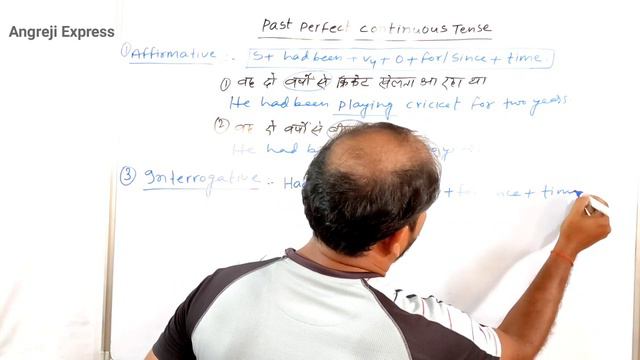 Angreji Express
Past Perfect Continuous Tense
① Affirmative :- S + had been + V4 + O + for/since + time.
① वह दो वर्षों से क्रिकेट खेलता आ रहा था
He had been playing cricket for two years
(2) वह दो वर्षों से
He had
③ Interrogative :- Ha + time